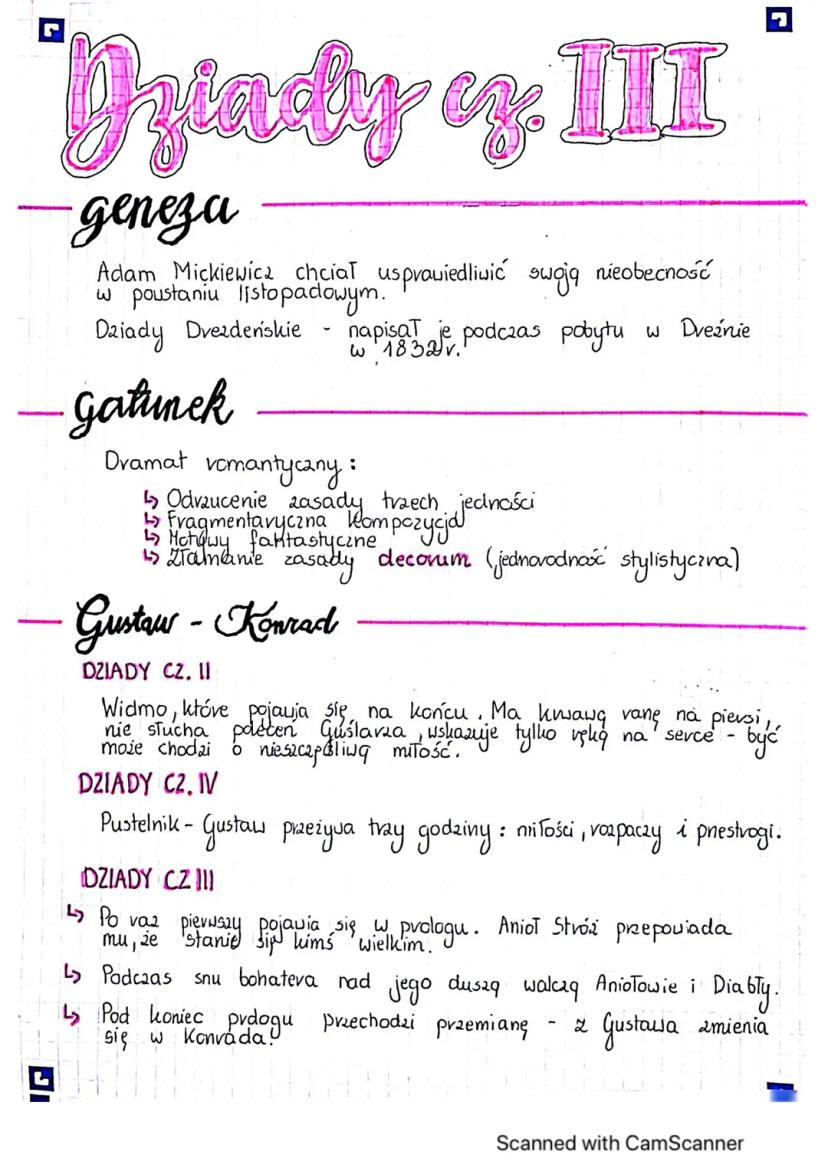 Dziady cz. III
geneza
Adam Mickiewicz chciał usprawiedliwić swoją nieobecność
w powstaniu listopadowym.
Dziady Drezdeńskie - napisał je podczas pobytu w Dreźnie
w 1832r.
gatunek
Dramat romantyczny:
↳ Odrzucenie zasady trzech jedności
↳ Fragmentaryczna kompozycja
↳ Motywy fantastyczne
↳ Złamanie zasady decorum (jednorodność stylistyczna)
Gustaw - Konrad
DZIADY CZ. II
Widmo, które pojawia się na końcu. Ma krwawą ranę na piersi,
nie słucha poleceń Guślarza, wskazuje tylko ręką na serce - być
może chodzi o nieszczęśliwą miłość.
DZIADY CZ. IV
Pustelnik - Gustaw przeżywa trzy godziny: miłości, rozpaczy i przestrogi.
DZIADY CZ III
↳ Po raz pierwszy pojawia się w prologu. Anioł Stróż przepowiada
mu, że stanie się kimś wielkim.
↳ Podczas snu bohatera nad jego duszą walczą Aniołowie i Diabły.
↳ Pod koniec prologu przechodzi przemianę - z Gustawa zmienia
się w Konrada.
Scanned with CamScanner